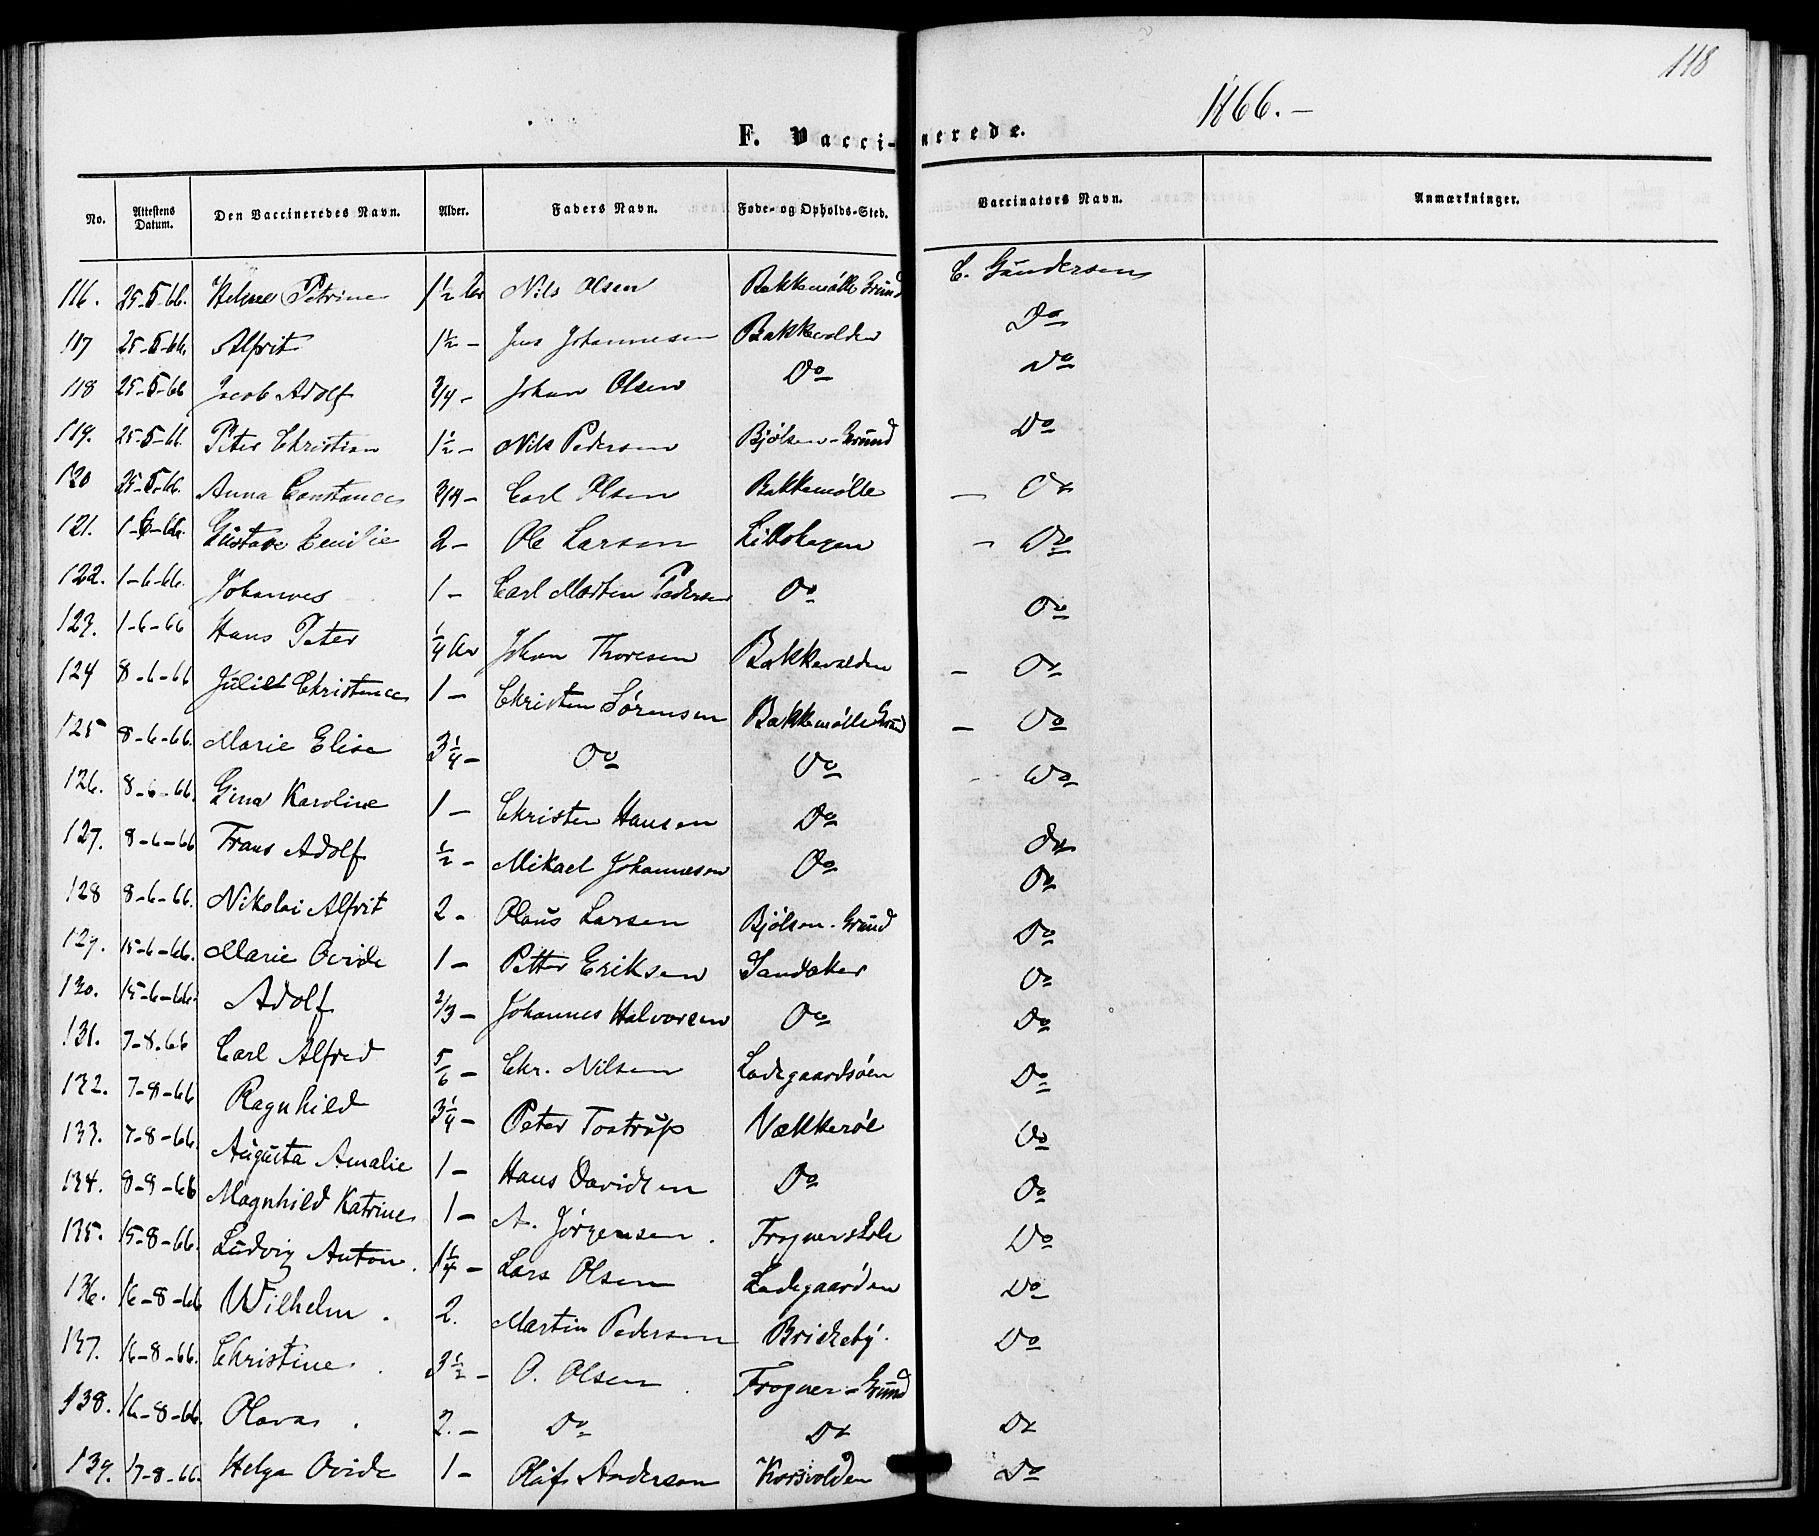 118
1866.-
F. Vaccinerede.
No. | Attestens Datum. | Den Vaccineredes Navn. | Alder. | Faders Navn. | Føde- og Opholds-Sted. | Vaccinators Navn. | Anmærkninger.
116. | 25-5-66. | Petrine | 1½ | Nils Olsen | Bakkemølle Grund | C. Gundersen
117 | 25-5-66. | Alfrit | 1½ - | Jens Johannesen | Bakkevolden | Do
118 | 25-5-66 | Jacob Adolf | 3/4 - | Johan Olsen | Do | Do
119. | 25-5-66. | Peter Christian | 1½ - | Nils Pedersen | Bjølsen-Grund | Do
120 | 25-5-66. | Anna Constance | 3/4 - | Carl Olsen | Bakkemølle | - Do
121. | 1-6-66. | Gustave Emilie | 2 - | Ole Larsen | Lillohagen | - Do
122. | 1-6-66. | Johannes | 1 - | Carl Morten Pedersen | Do | Do
123. | 1-6-66 | Hans Peter | ¼ Aar | Johan Thoresen | Bakkevolden | - Do
124 | 8-6-66 | Julie Christence | 1 - | Christen Sørensen | Bakkemølle Grund | - Do
125 | 8-6-66. | Marie Elise | 3¼ - | Do | Do | - Do
126. | 8-6-66. | Gina Karoline | 1 - | Christen Hansen | Do | Do
127. | 8-6-66 | Frans Adolf | ½ - | Mikael Johannesen | Do | Do
128 | 8-6-66. | Nikolai Alfrit | 2 - | Olaus Larsen | Bjølsen-Grund | Do
129. | 15-6-66. | Marie Ovide | 1 - | Petter Eriksen | Sandaker | Do
130. | 15-6-66. | Adolf | 2/3 - | Johannes Halvorsen | Do | Do
131. | 7-8-66 | Carl Alfred | 5/6 - | Chr. Nilsen | Ladegaardsøen | Do
132. | 7-8-66 | Ragnhild | 3¼ - | Peter Tostrup | Vækkerøe | Do
133. | 7-8-66. | Augusta Amalie | 1 - | Hans Davidsen | Do | Do
134. | 8-8-66 | Magnhild Katrine | 1 - | A. Jørgensen. | Frognerskole | Do
135. | 15-8-66. | Ludvig Anton. | 1¼ - | Lars Olsen | Ladegaarden | Do
136. | 16-8-66 | Wilhelm. | 2. | Martin Pedersen | Briskeby. | Do
137. | 16-8-66. | Christine. | 3½ - | O. Olsen. | Frogner-Grund | Do
138. | 16-8-66. | Olava. | 2. - | Do | Do | Do
139. | 17-8-66. | Helga Ovide | 1 - | Olaf Andersen | Korsvolden | Do